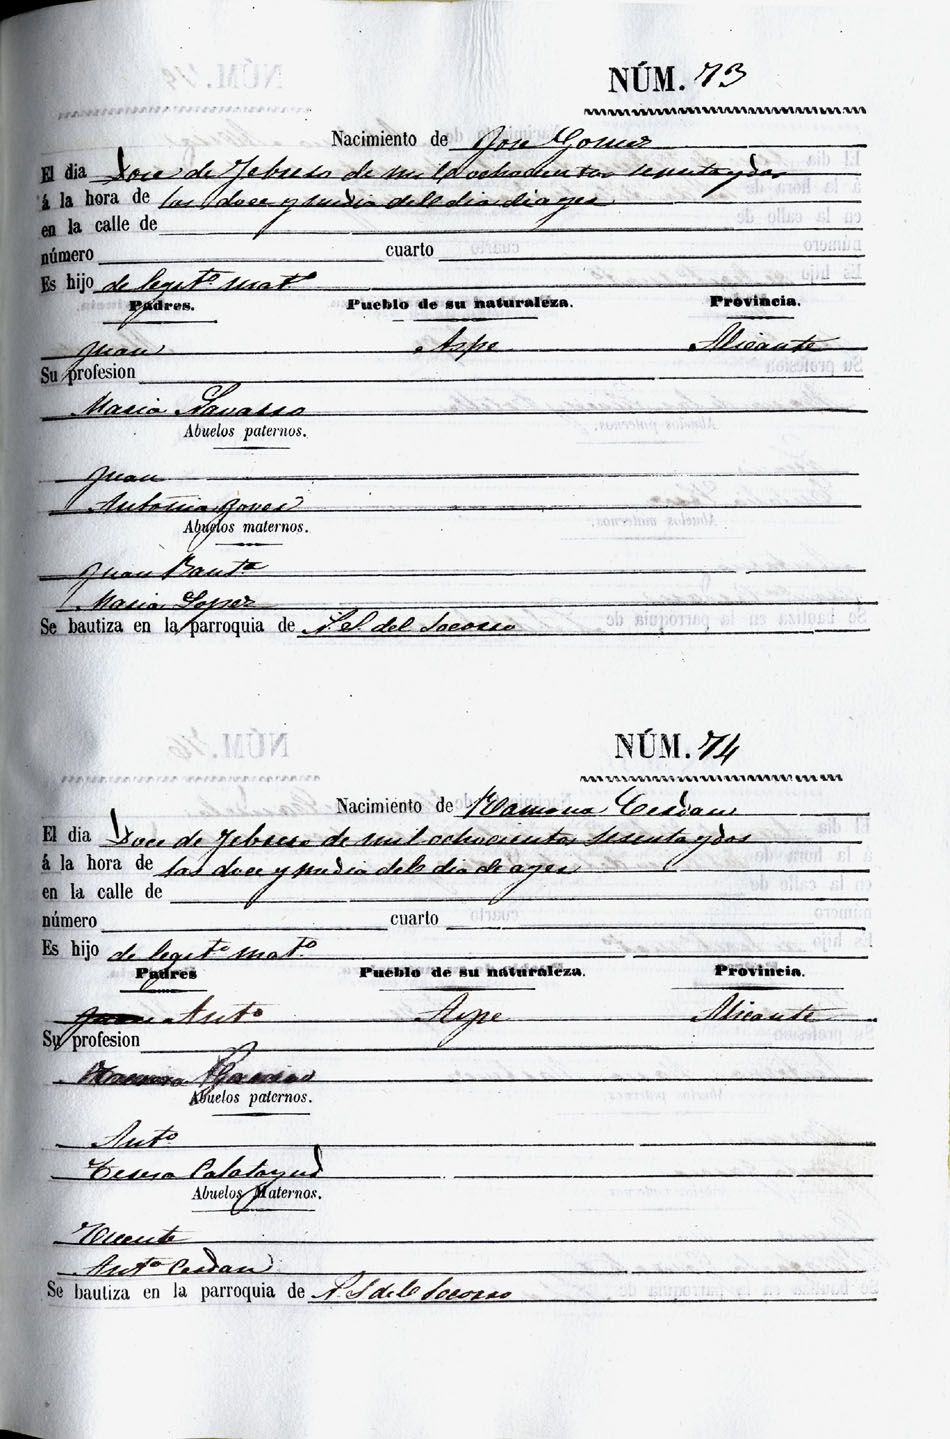 NÚM. 73
Nacimiento de Jose Gomez
El dia Doce de Febrero de mil ochocientos sesenta y dos
á la hora de las doce y media del dia de ayer
en la calle de
número cuarto
Es hijo de legit.º mat.º
Padres. Pueblo de su naturaleza. Provincia.
Juan Aspe Alicante
Su profesion
Maria Navarro
Abuelos paternos.
Juan
Antonia
Abuelos maternos.
Juan Baut.ª
Maria Lopez
Se bautiza en la parroquia de del Socorro
NÚM. 74
Nacimiento de Ramona Cerdan
El dia Doce de Febrero de mil ochocientos sesenta y dos
á la hora de las doce y media del dia de ayer
en la calle de
número cuarto
Es hijo de legit.º mat.º
Padres Pueblo de su naturaleza. Provincia.
Ant.º Aspe Alicante
Su profesion
Abuelos paternos.
Ant.º
Teresa Calatayud
Abuelos Maternos.
Vicente
Ant.ª Cerdan
Se bautiza en la parroquia de N. S. del Socorro